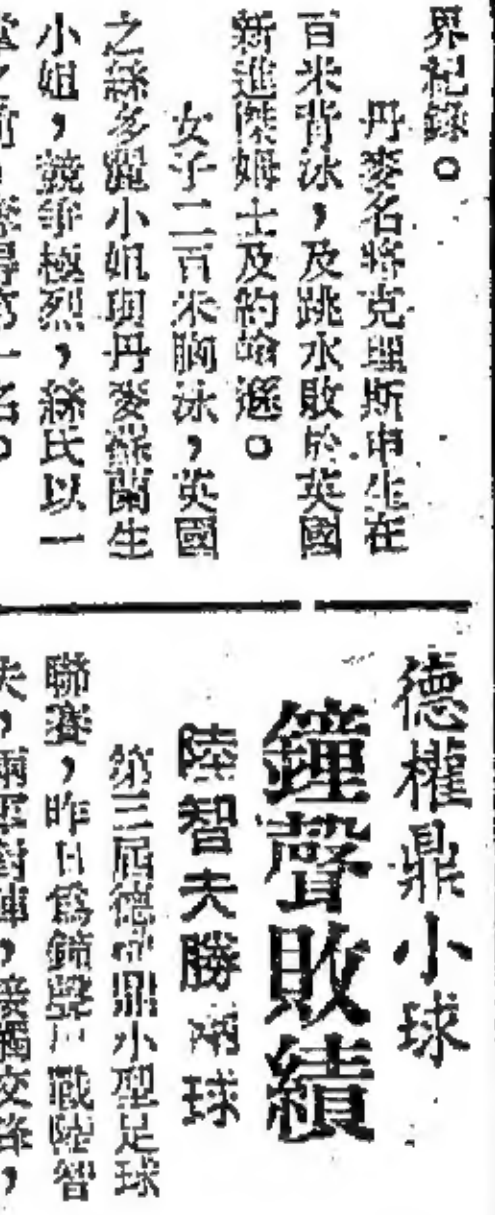 界紀錄。
丹麥名將克理斯申生在
百米背泳,及跳水敗於英國
新進傑姆士及約翰遜。
女子二百米胸泳,英國
之絲多麗小姐與丹麥蘇蘭生
小姐,競爭極烈,絲氏以一
之
一名。
德權鼎小球
鐘聲敗績
陸智夫勝兩球
第三屆德權鼎小型足球
聯賽,昨日爲鐘聲戰陸智
夫,兩軍對陣,接觸交鋒,